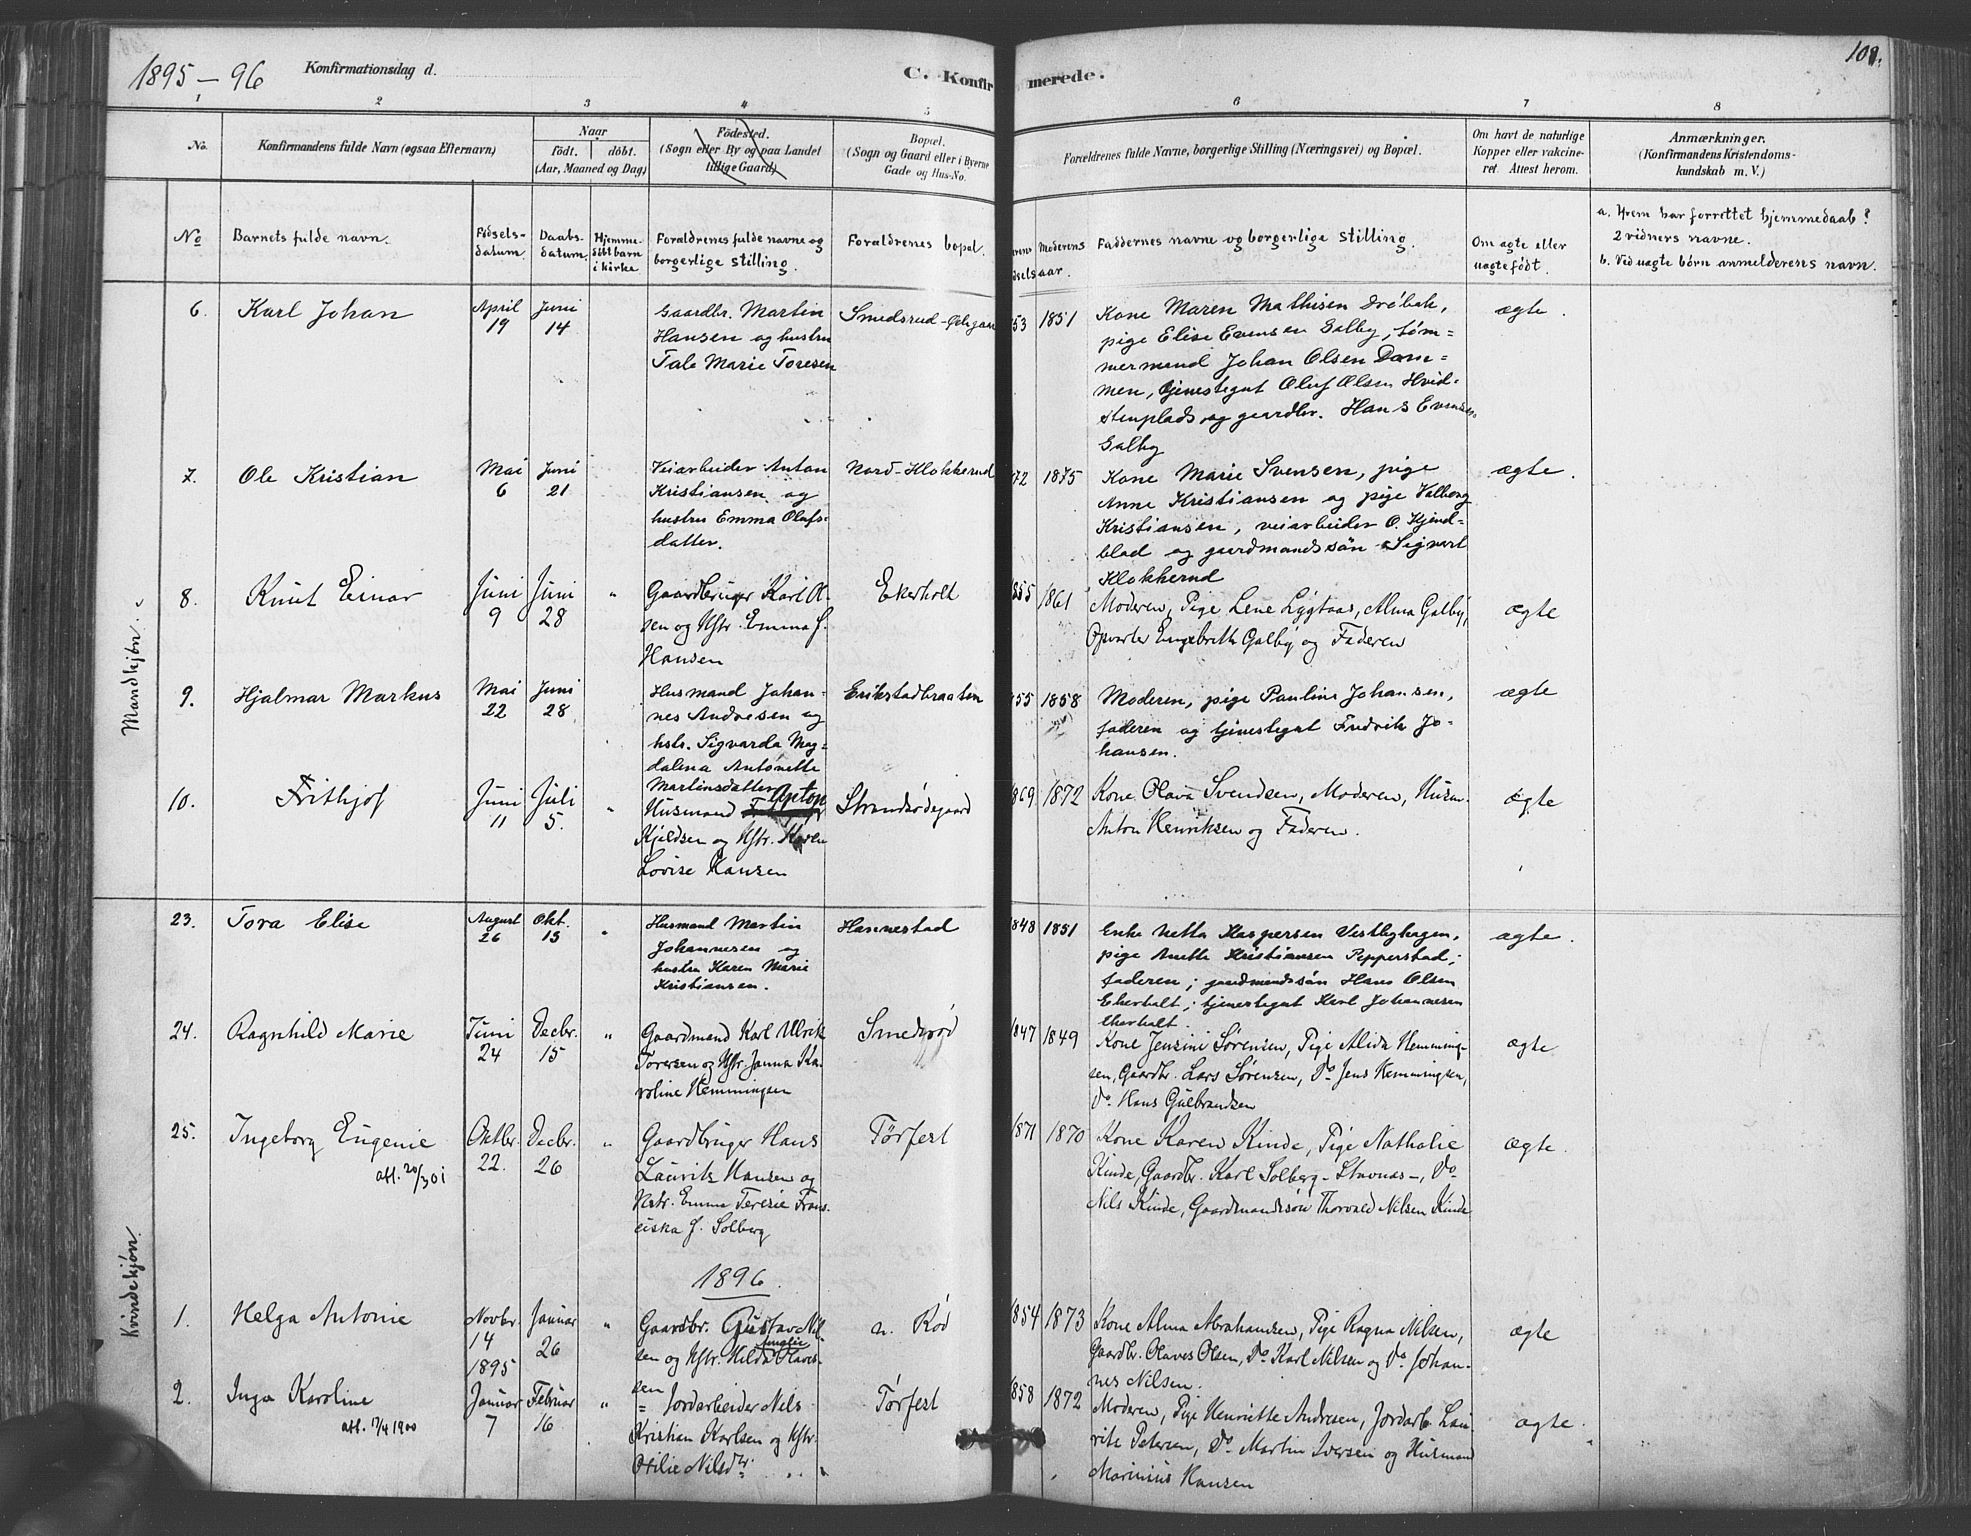 1895–96 Konfirmationsdag d. C. Konfirmerede. 109.
1 2 3 4 5 6 7 8
No. Konfirmandens fulde Navn (ogsaa Efternavn) Naar født. døbt. (Aar, Maaned og Dag) Fødested. (Sogn eller By og paa Landet tillige Gaard) Bopæl. (Sogn og Gaard eller i Byerne Gade og Hus-No. Forældrenes fulde Navne, borgerlige Stilling (Næringsvei) og Bopæl. Om havt de naturlige Kopper eller vakcineret. Attest herom. Anmærkninger. (Konfirmandens Kristendomskundskab m. V.)
No Barnets fulde navn. Fødselsdatum. Daabsdatum. Hjemmedøbt barn i kirke Forældrenes fulde navne og borgerlige stilling. Forældrenes bopæl. Moderens aar. Faddernes navne og borgerlige stilling. Om ægte eller uægte født. a. Hvem har forrettet hjemmedaab? 2 vidners navne. b. Ved uægte børn anmelderens navn.
Mandkjøn.
6. Karl Johan April 19 Juni 14 Gaardbr. Martin Smedsrud 53 1851 Kone Maren Mathisen Drøbak, ægte.
Hansen og hustru pige Elise Evensen Galby, tøm=
Tale Marie Toresen mermand Johan Olsen Dam=
men, tjenestegut Oluf Olsen Hvid=
stenplads og gaardbr. Hans Evensen
Galby
7. Ole Kristian Mai 6 Juni 21 Veiarbeider Anton Nord-Klokkerud 72 1875 Kone Marie Svensen, pige ægte.
Kristiansen og Anne Kristiansen og pige Valborg
hustru Emma Olufs= Kristiansen, veiarbeider O. Kjend=
datter. blad og gaardmandssøn Sigvart
Klokkerud
8. Knut Einar Juni 9 Juni 28 " Gaardbruger Karl Ol= Ekerholt 855 1861 Moderen, Pige Lene Lygtaas, Alma Galby, ægte
sen og Hstr. Emma f. Engebreth Galby og Faderen
Hansen
9. Hjalmar Markus Mai 22 Juni 28 Husmand Johan= Erikstadbraaten 855 1858 Moderen, pige Pauline Johansen, ægte
nes Andresen og faderen og tjenestegut Fredrik Jo=
hstr. Sigvarda Mag= hansen.
dalena Antonette
Martinsdatter
10. Frithjof Juni 11 Juli 5. " Husmand Anton Strandsødegaard 869 1872 Kone Olava Svendsen, Moderen, Husm. ægte
Kjeldsen og Hstr. Karen Anton Henriksen og Faderen.
Lovise Hansen
Kvindekjøn.
23. Tora Elise August 26 Okt. 13 " Husmand Martin Hannestad 848 1851 Enke Netta Kaspersen Vestbyhagen, ægte.
Johannesen og pige Anette Kristiansen Pepperstad;
hustru Karen Marie faderen; gaardmandssøn Hans Olsen
Kristiansen. Ekerholt; tjenestegut Karl Johannesen
Ekerholt.
24. Ragnhild Marie Juni 24 Decbr. 15 " Gaardmand Karl Ulrik Smedsrød 847 1849 Kone Jensine Sørensen, Pige Alida Hemming= ægte
Toresen og Hstr. Janna Ka= sen, Gaardbr. Lars Sørensen, Do Jens Hemmingsen,
roline Hemmingsen Do. Hans Gulbrandsen
25. Ingeborg Eugenie Oktbr. 22. Decbr. 26 " Gaardbruger Hans Tørfest 871 1870 Kone Karen Kinde, Pige Nathalie ægte.
att. 20/3 01 Lauritz Hansen og Kinde, Gaardbr. Karl Solberg - Stavnæs -, Do
Hstr. Emma Teresie Fran= Nils Kinde, Gaardmandssøn Thorvald Nilsen Kinde
ciska f. Solberg
1896.
1. Helga Antonie Novbr. 14 1895 Januar 26 " Gaardbr. Gustav Nil= n. Rød 854 1873 Kone Alma Abrahamsen, Pige Ragna Nilsen, ægte
sen og Hstr. Hilda Amalie Olaves= Gaardbr. Olaves Olsen, Do. Karl Nilsen og Do. Johan=
sen nes Nilsen.
2. Inga Karoline Januar 7 Februar 16 " Jordarbeider Nils Tørfest 858 1872 Moderen, Pige Henriette Andresen, Jordarb. Lau= ægte.
att. 17/4 1900 Kristian Karlsen og Hstr. ritz Petersen, Do. Martin Iversen og Husmand
Otilie Nilsdtr. Marinius Hansen